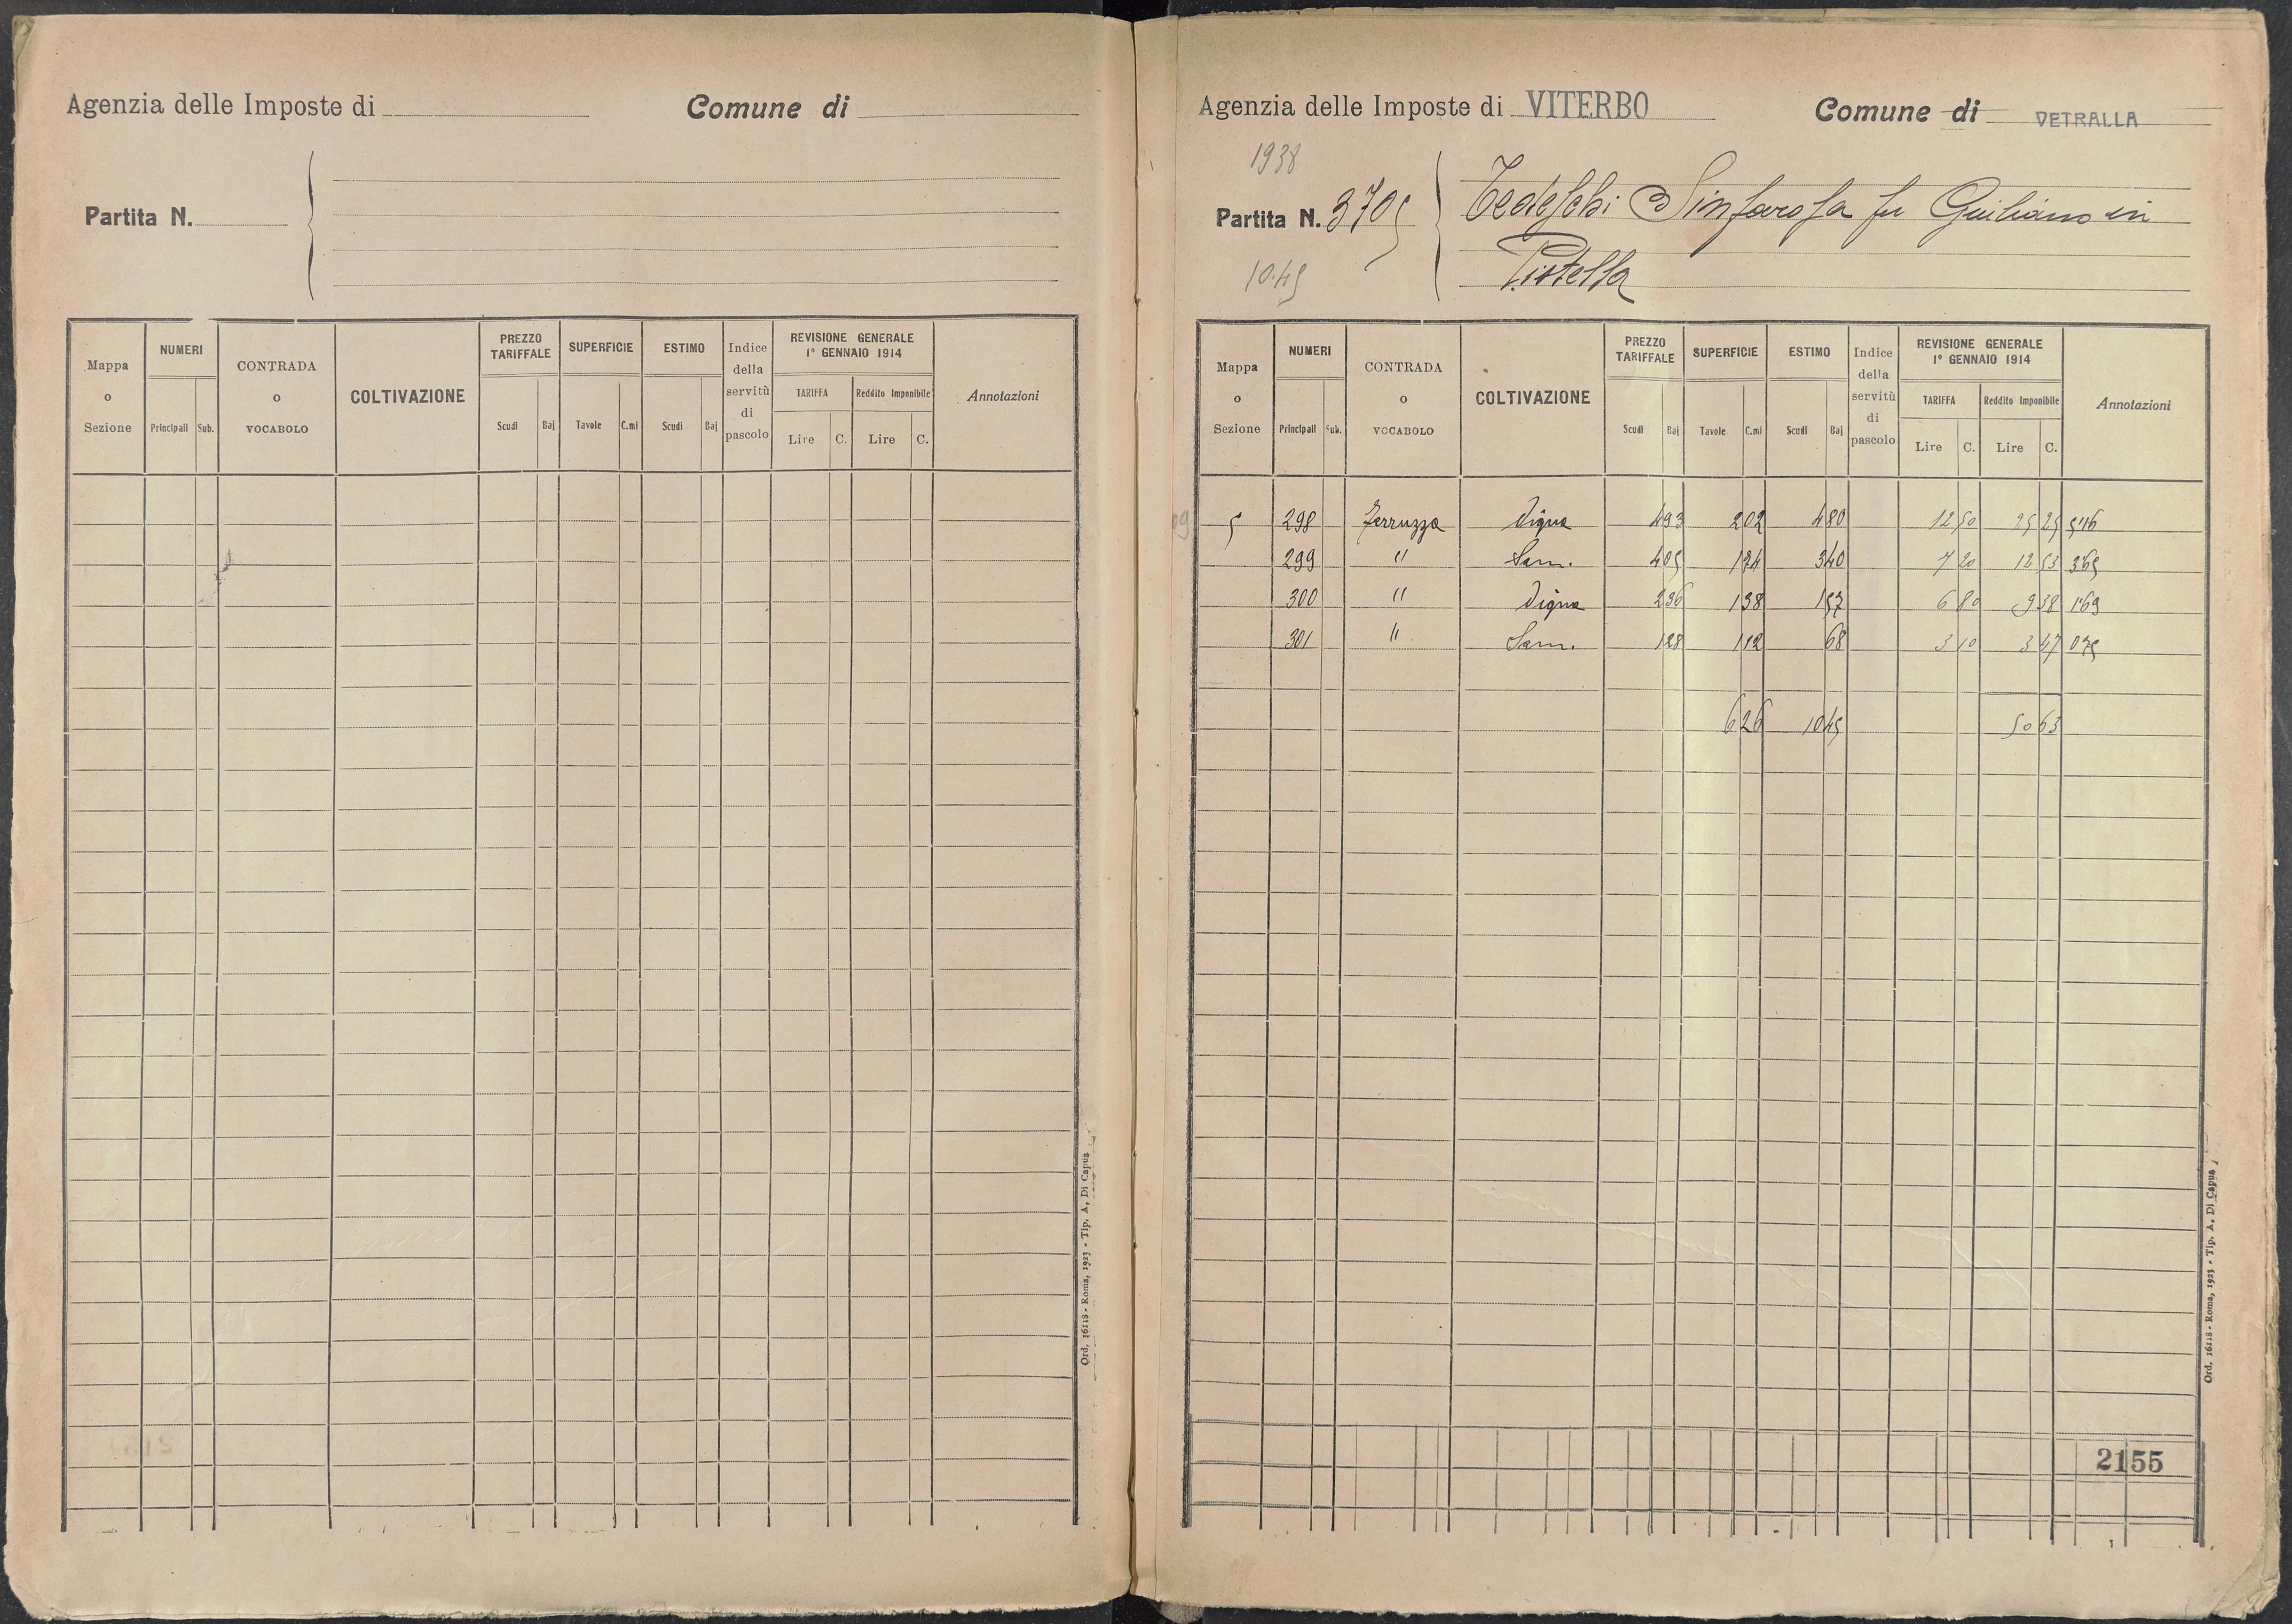 Agenzia delle Imposte di
Comune di
Partita N.
Mappa o Sezione
NUMERI
Principali Sub.
CONTRADA o VOCABOLO
COLTIVAZIONE
PREZZO TARIFFALE
Scudi Baj
SUPERFICIE
Tavole C.mi
ESTIMO
Scudi Baj
Indice della servitù di pascolo
REVISIONE GENERALE
1° GENNAIO 1914
TARIFFA
Lire C.
Reddito Imponibile
Lire C.
Annotazioni
Ord. 16118 - Roma, 1923 - Tip. A. Di Capua
Agenzia delle Imposte di VITERBO
Comune di VETRALLA
1938
Partita N. 3705
Tedeschi Sinforosa fu Giuliano in
Pistella
10.45
Mappa o Sezione
NUMERI
Principali Sub.
CONTRADA o VOCABOLO
COLTIVAZIONE
PREZZO TARIFFALE
Scudi Baj
SUPERFICIE
Tavole C.mi
ESTIMO
Scudi Baj
Indice della servitù di pascolo
REVISIONE GENERALE
1° GENNAIO 1914
TARIFFA
Lire C.
Reddito Imponibile
Lire C.
Annotazioni
5 298 Ferruzza Vigna 493 202 480 12 50 25 25 5 16
299 " Sam. 405 174 340 7 20 12 53 3 65
300 " Vigna 236 138 157 6 80 9 38 1 69
301 " Sam. 128 112 68 3 10 3 47 0 75
626 1045 50 63
2155
Ord. 16118 - Roma, 1923 - Tip. A. Di Capua